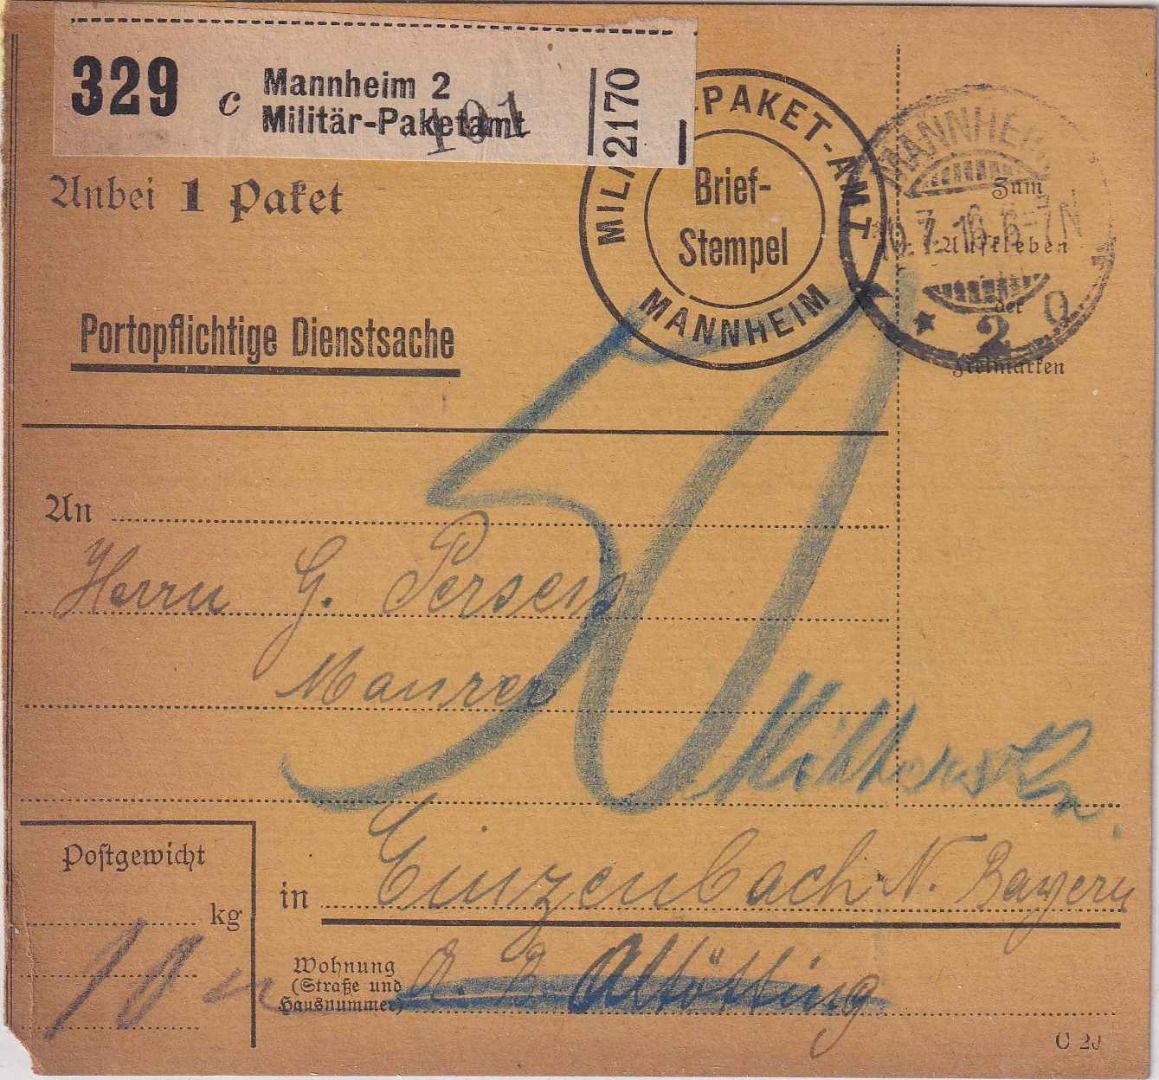 329 c Mannheim 2
Militär-Paketamt
101
2170
PAKET-AMT
MANNHEIM
Brief-
Stempel
MANNHEIM
7.16.6-7N
* 2 a
Zum
Aufkleben
der
Freimarken
Anbei 1 Paket
Portopflichtige Dienstsache
50
An
Herrn G. Persen
Maurer
Postgewicht
kg
10
in Einzenbach N. Bayern
Wohnung
(Straße und
Hausnummer)
A. B. Altötting
C 2J